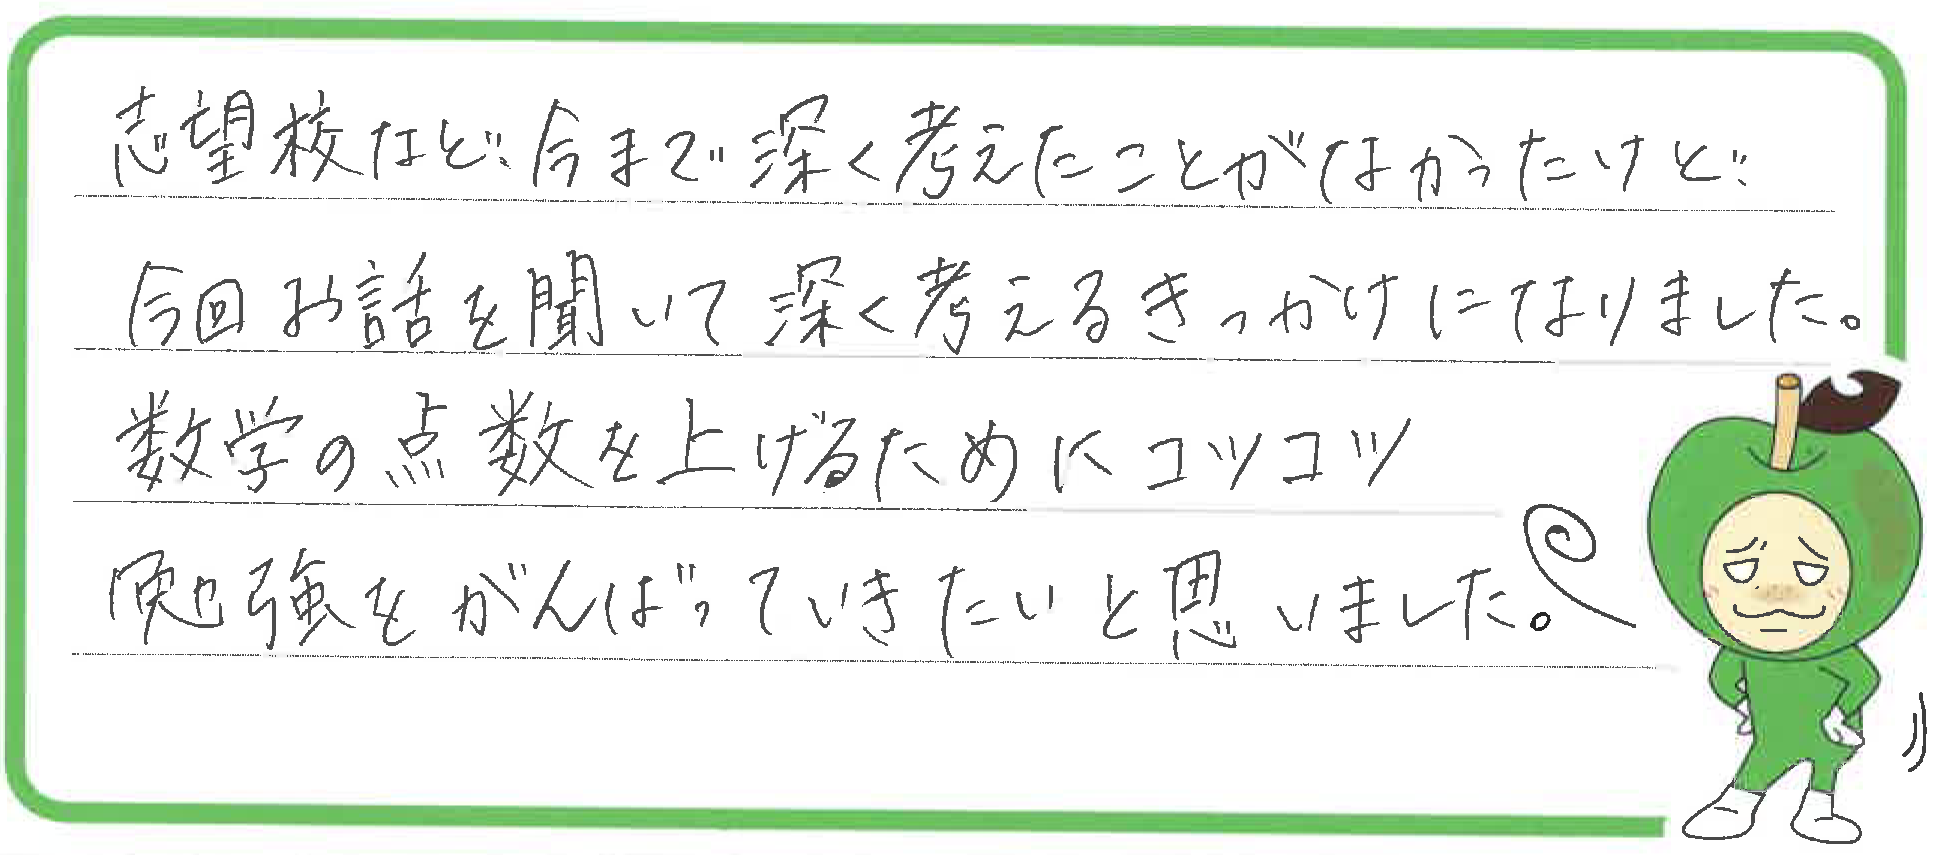 志望校など今まで深く考えたことがなかったけど
今回お話を聞いて深く考えるきっかけになりました。
数学の点数を上げるためにコツコツ
勉強をがんばっていきたいと思いました。